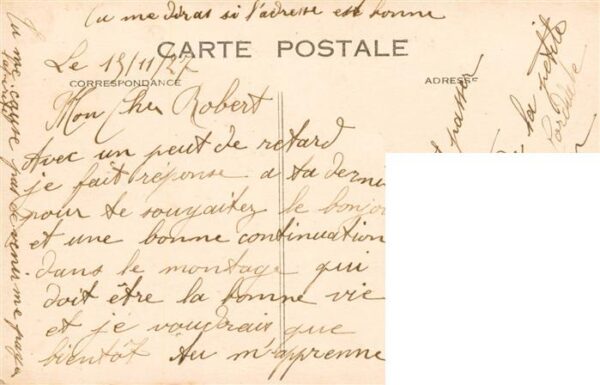 Tu me diras si l'adresse est bonne
CARTE POSTALE
Le 15/11/27
CORRESPONDANCE
ADRESSE
Mon Cher Robert
Avec un peut de retard
je fait réponse a ta derni
pour te souyaitez le bonjou
et une bonne continuation
dans le montage qui
doit être la bonne vie
et je voudrais que
bientôt tu m'apprenne
Tu me
pas de venir me
passer
la petite